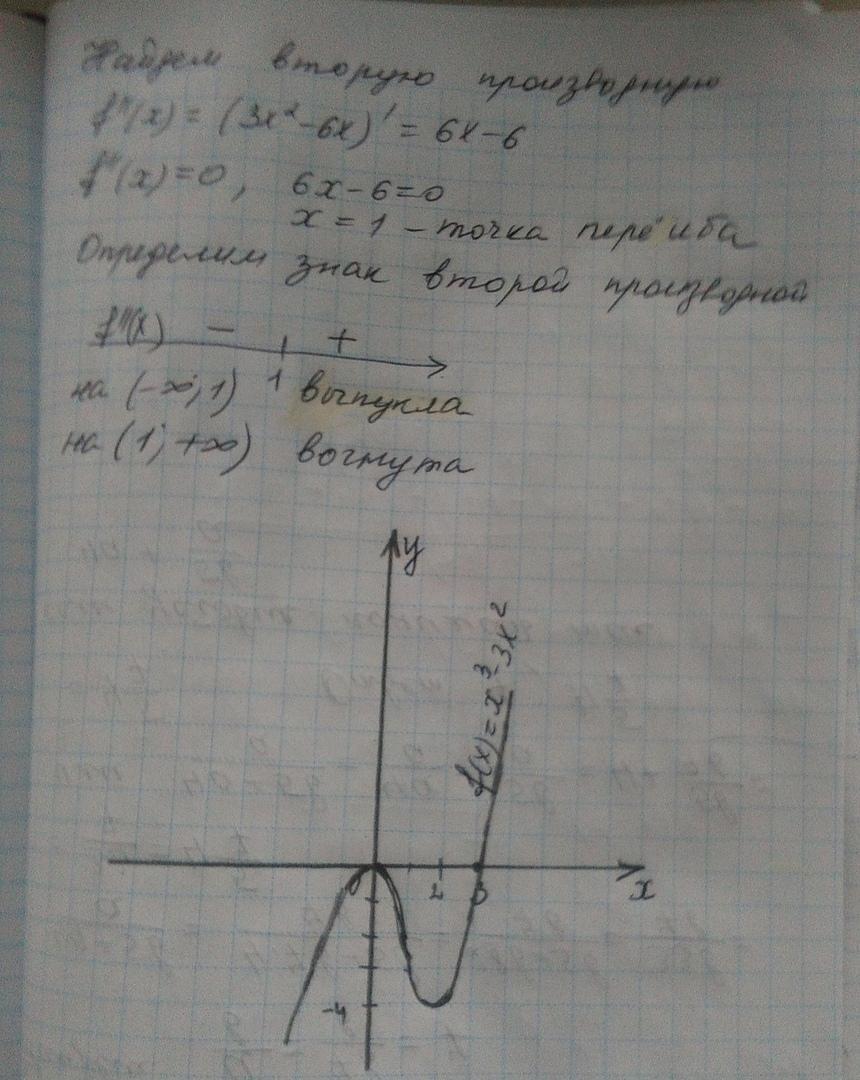 Найдем вторую производную
f''(x) = (3x²-6x)' = 6x-6
f''(x)=0, 6x-6=0
x = 1 - точка перегиба
Определим знак второй производной
f''(x) - +
1
на (-∞; 1) выпукла
на (1; +∞) вогнута
y
f(x) = x³-3x²
0 2 3 x
-4